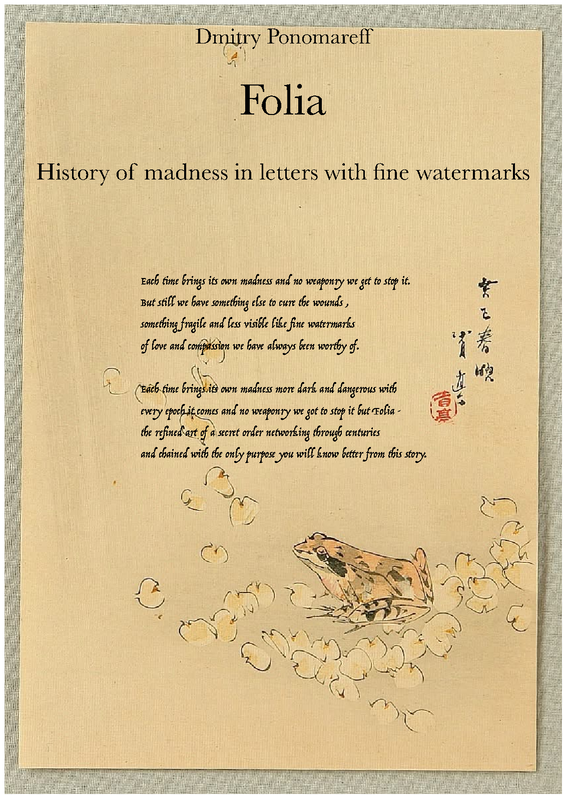 Dmitry Ponomareff
Folia
History of madness in letters with fine watermarks
Each time brings its own madness and no weaponry we get to stop it.
But still we have something else to cure the wounds ,
something fragile and less visible like fine watermarks
of love and compassion we have always been worthy of.
Each time brings its own madness more dark and dangerous with
every epoch it comes and no weaponry we got to stop it but Folia -
the refined art of a secret order networking through centuries
and chained with the only purpose you will know better from this story.
春晩